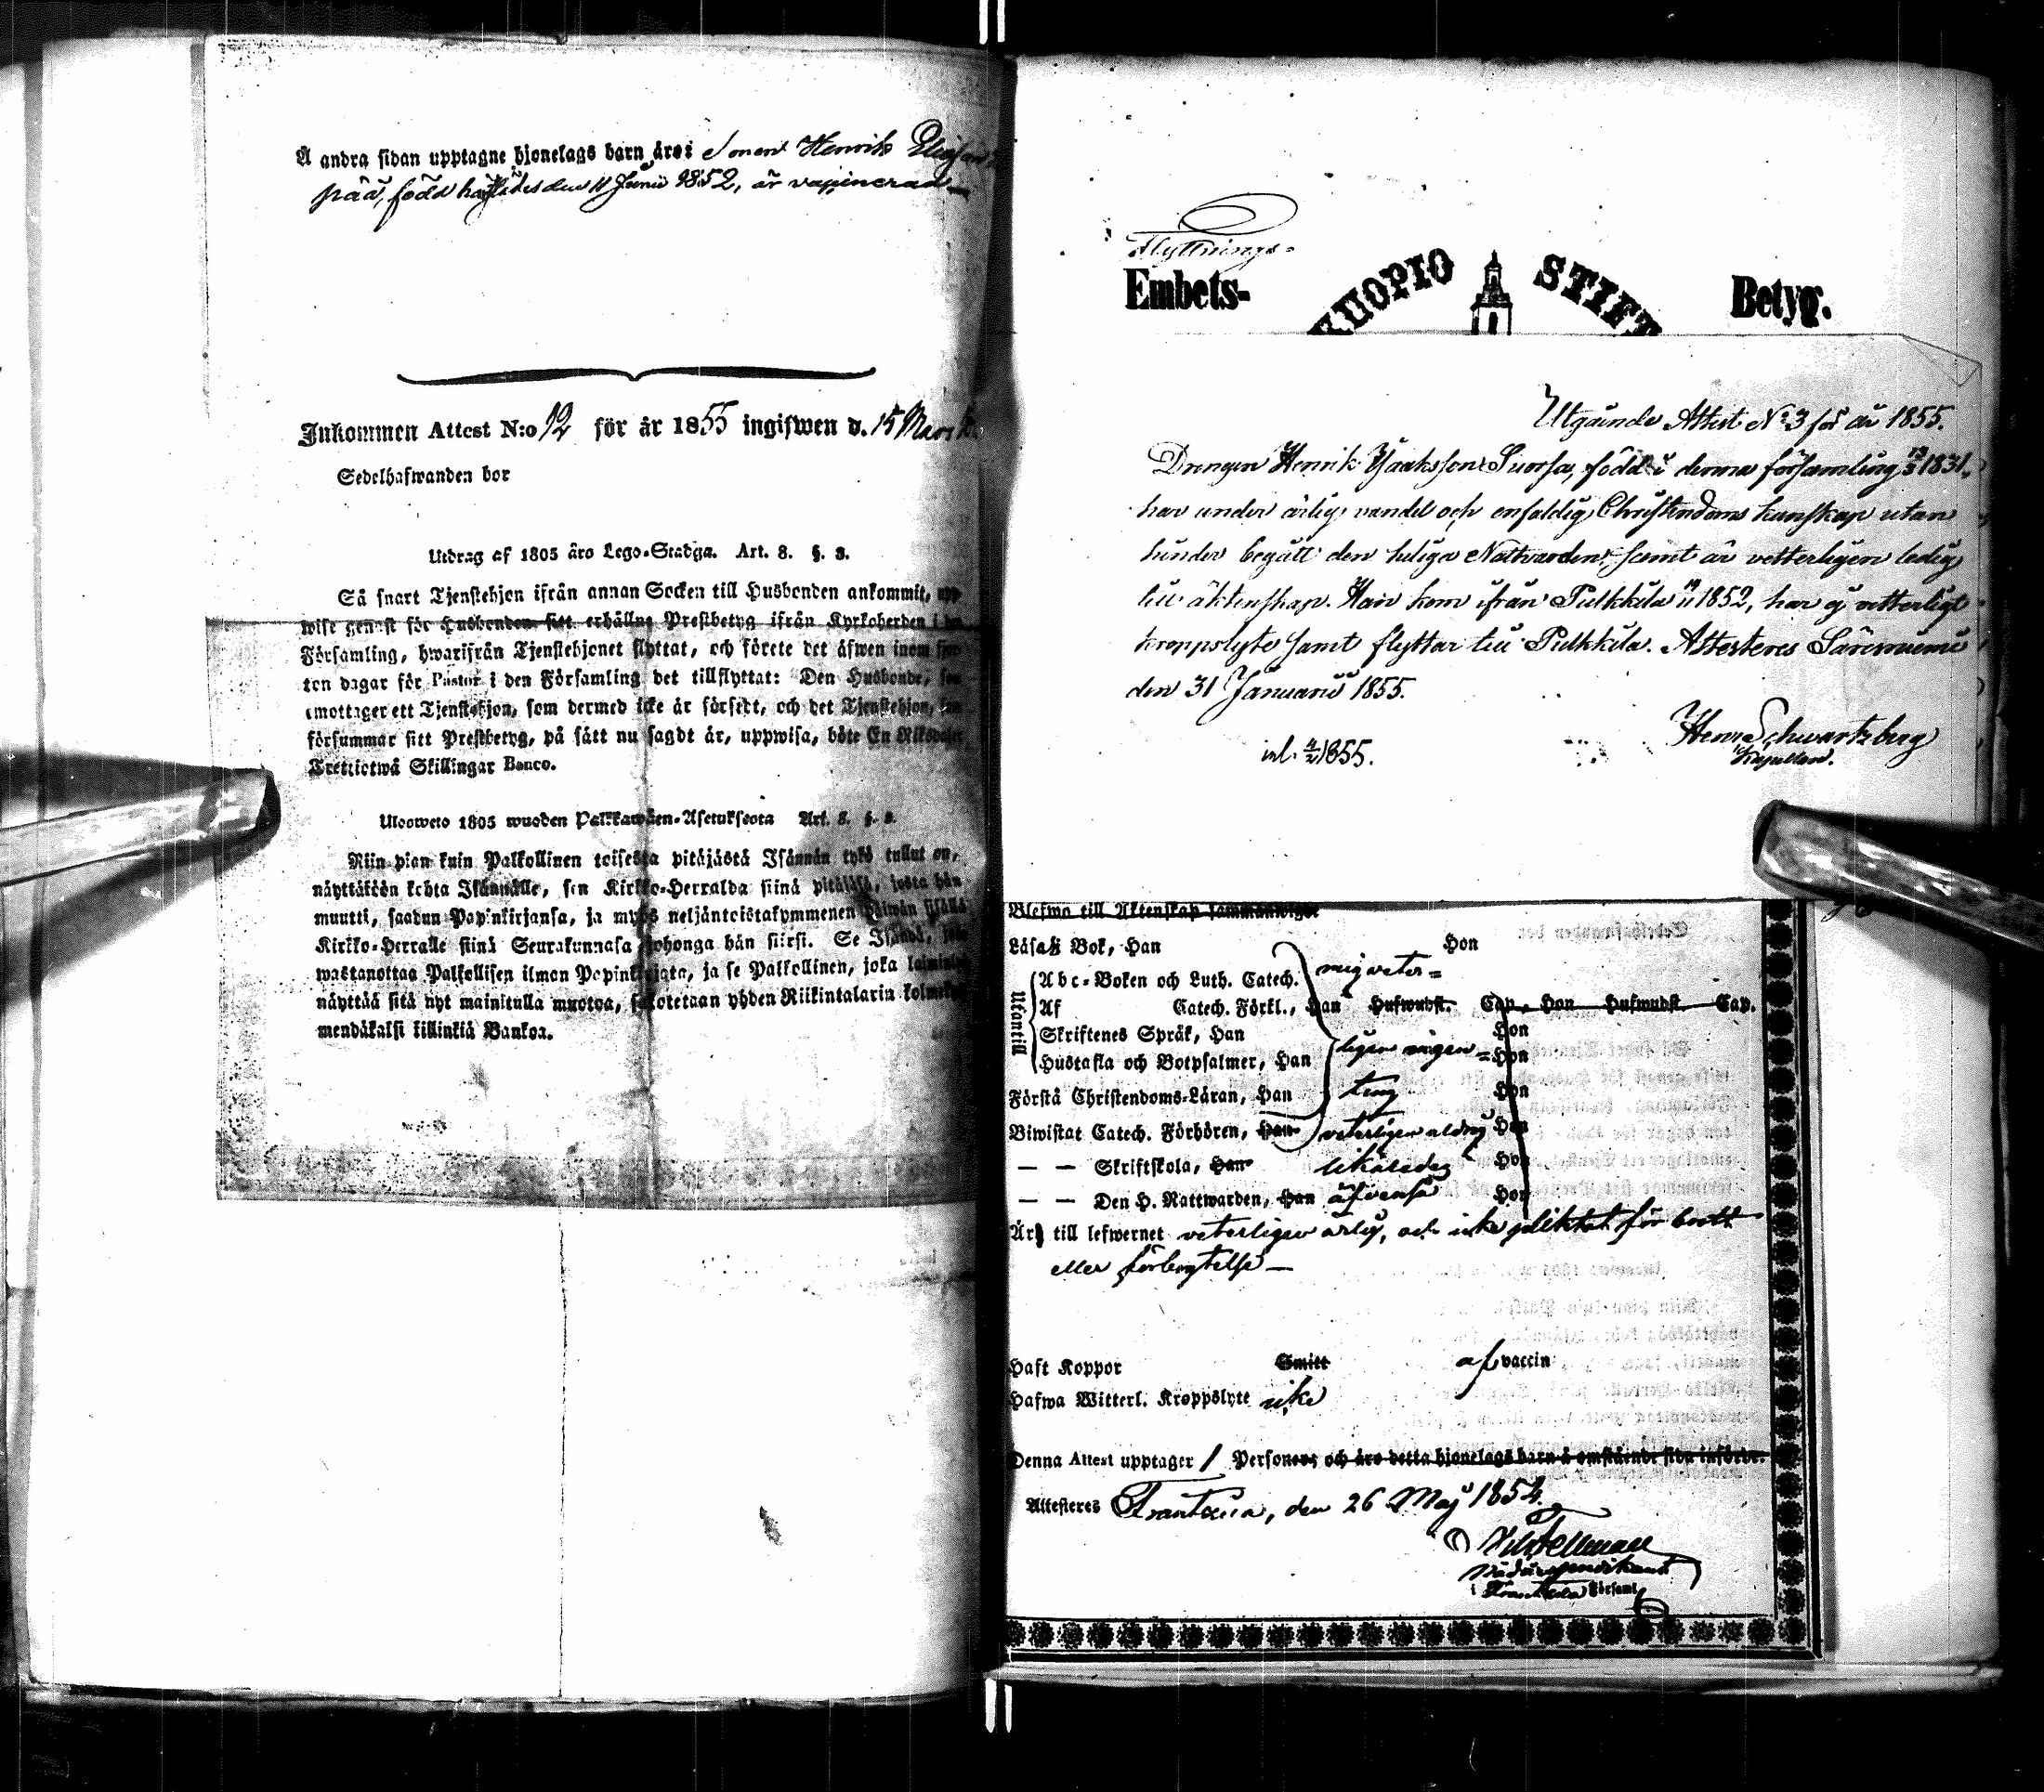 Å andra sidan upptagne hjonelags barn äro: Sonen Henrik
född härstädes den 11 Junii 1852, är vaccinerad
Inkommen Attest N:o 12 för år 1855 ingifwen d. 15 Mars
Sedelhafwanden bor
Utdrag af 1805 års Lego-Stadga. Art. 8. §. 3.
Så snart Tjenstehjon ifrån annan Socken till Husbonden ankommit,
wise genast för Husbonden sitt erhållna Prestbetyg ifrån Kyrkoherden i
Församling, hwarifrån Tjenstehjonet flyttat, och förete det äfwen inom
ton dagar för Pastor i den Församling det tillflyttat: Den Husbonde,
emottager ett Tjenstehjon, som dermed icke är försedt, och det Tjenstehjon,
försummar sitt Prestbetyg, på sätt nu sagdt är, uppwisa, böte En Riksdaler
Trettiotwå Skillingar Banco.
Ulosweto 1805 wuoden Palkkawäen-Asetuksesta Art. 8. §.
Niin pian kuin Palkollinen toisesta pitäjästä Isännän tykö tullut on,
näyttäköön kohta Isännälle, sen Kirkko-Herralda siinä pitäjäsä, josta hän
muutti, saadun Papinkirjansa, ja myös neljäntoistakymmenen päiwän sisällä
Kirkko-Herralle siinä Seurakunnasa johonga hän siirsi. Se Isändä,
wastanottaa Palkollisen ilman Papinkirjata, ja se Palkollinen, joka
näyttää sitä nyt mainitulla muotoa, sakotetaan yhden Riikintalarin
mendäkaksi killinkiä Bankoa.
Flyttnings-
Embets- KUOPIO STIFT Betyg.
Utgående Attest No 3 för år 1855.
Drengen Henrik Isaksson Suorsa, född i denna församling 1831,
har under ärlig vandel och enfaldig Christendoms kunskap utan
hinder begått den heliga Nattvarden, samt är vetterligen ledig
till äktenskap. Han kom ifrån Pulkkila 1852, har ej vetterligt
kroppslyte samt flyttar till Pulkkila. Attesteres Säresniemi
den 31 Januarii 1855.
Henr. Schwartzberg
Kapellan.
inl. 4/2 1855.
Läsa i Bok, Han Hon
Abc-Boken och Luth. Catech.
Utantill
Af Catech. Förkl., Han Hufwudst. Cap., Hon Hufwudst. Cap.
Skriftenes Språk, Han Hon
Hustafla och Botpsalmer, Han ligen ingen= Hon
Förstå Christendoms-Läran, Han ting Hon
Biwistat Catech. Förhören, Han veterligen aldrig Hon
— — Skriftskola, Han likaledes Hon
— — Den H. Nattwarden, Han äfvenså Hon
Är till lefwernet veterligen ärlig, och icke pliktat för brott
eller förbrytelse —
Haft Koppor Smitt af vaccin
Hafwa Witterl. Kroppslyte icke
Denna Attest upptager 1 Personer och äro detta hjonelags barn å omstående sida införde.
Attesteres Frantsila, den 26 Maj 1854.
Nådårspredikant
i Frantsila Församl.